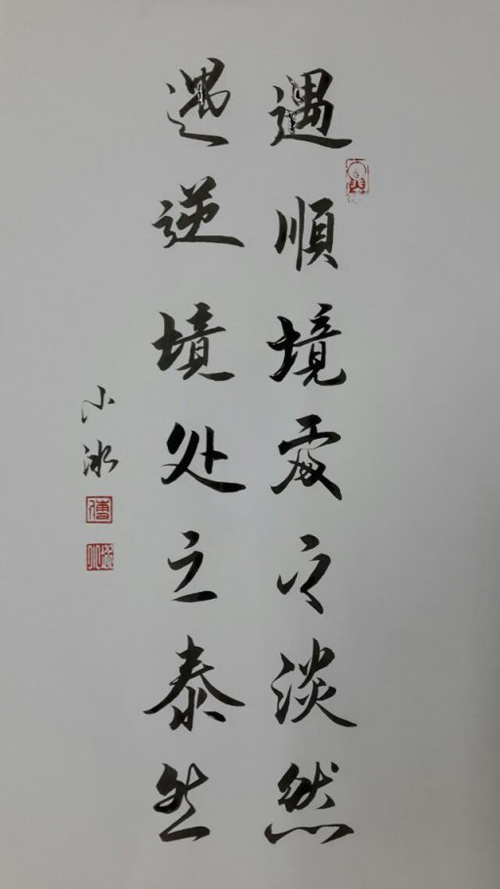 遇順境處之淡然
遇逆境处之泰然
小冰